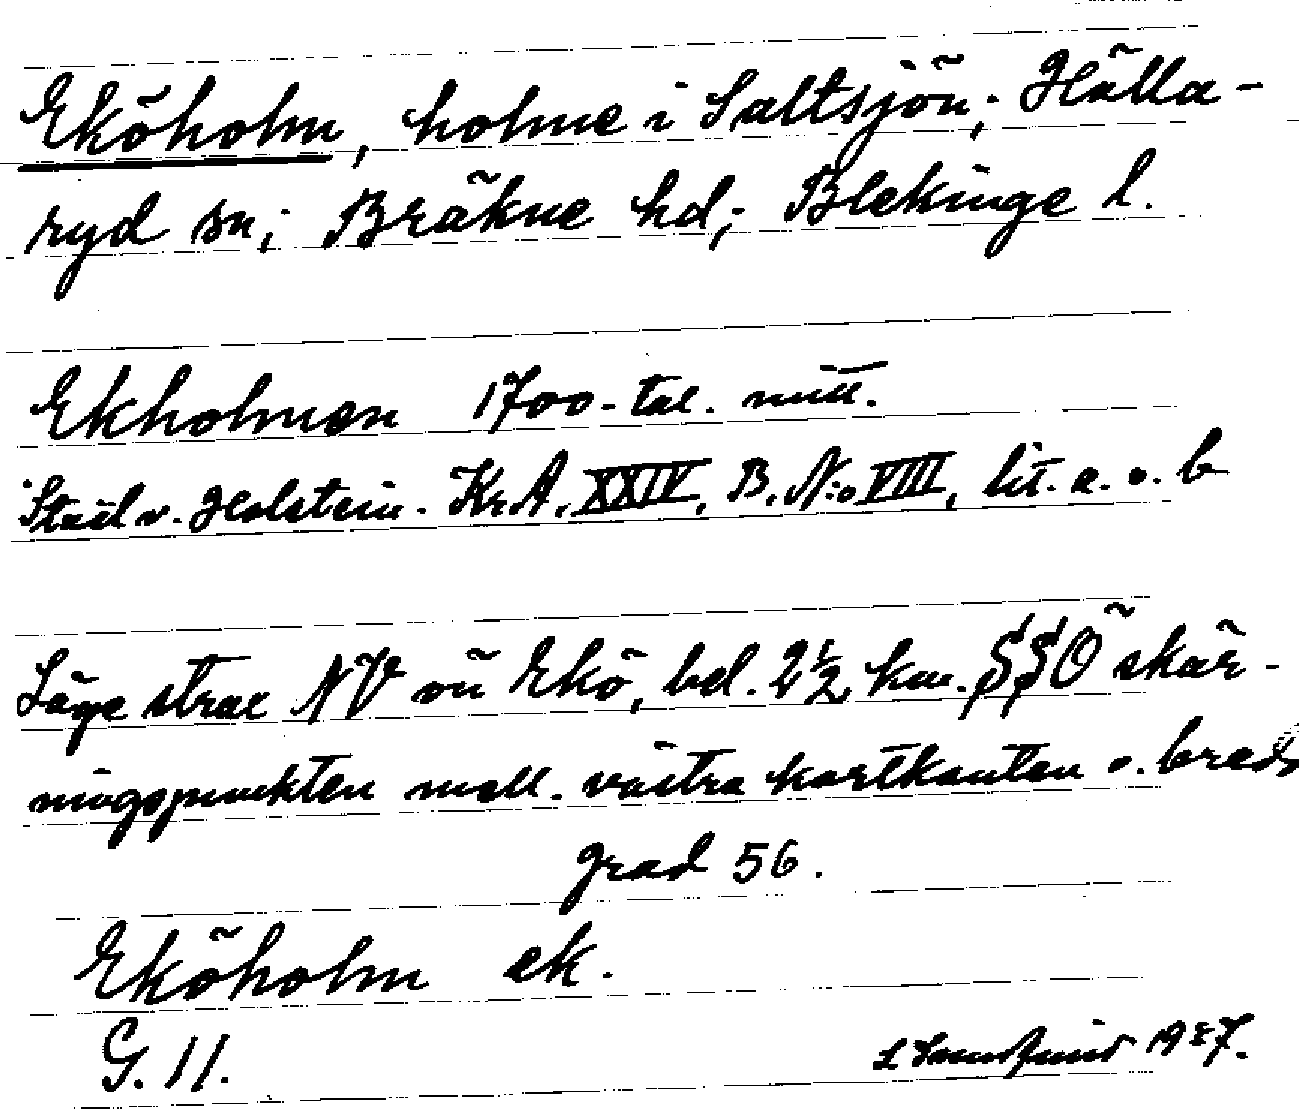 Eköholm, holme i Saltsjön; Hälla-
ryd sn; Bräkne hd; Blekinge l.
Ekholmen 1700-tal. mitt.
Staël v. Holstein. Kr.A. XXIV. B. N:o VIII, lit. a. o. b
Läge strax NV om Ekö, bel. 2½ km. SSO skär-
ningspunkten mell. västra kartkanten o. bredd
grad 56.
Eköholm ek.
G. 11.
1927.